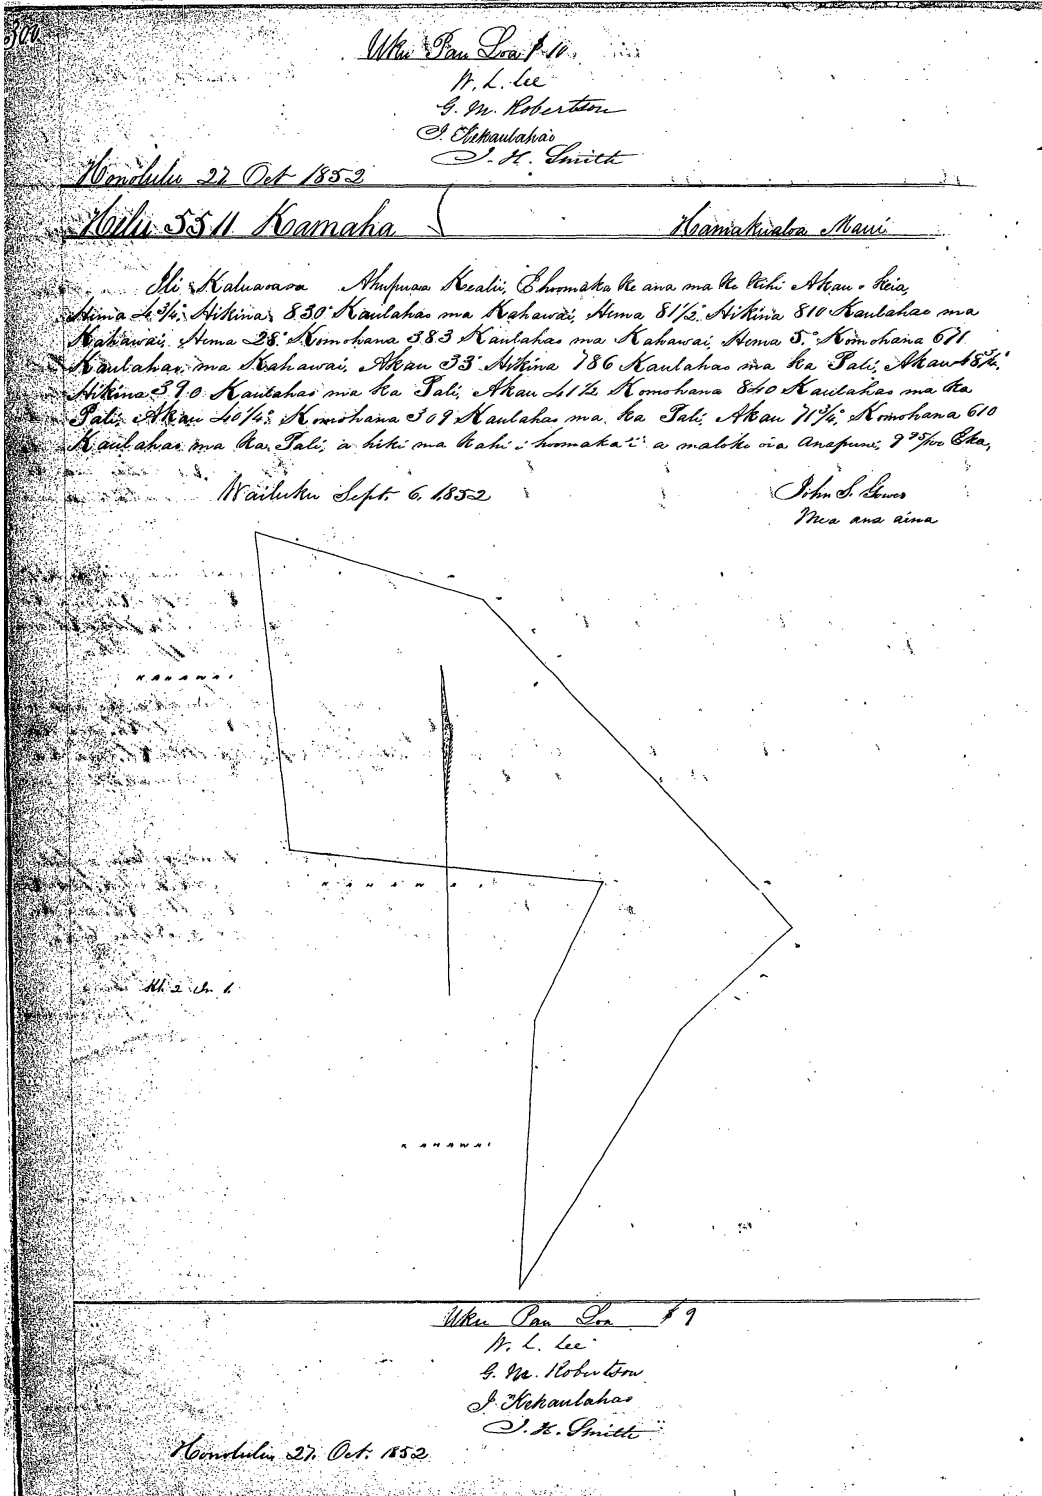 Uku Pau Loa $10.
W. L. Lee
G. M. Robertson
J. Kekaulahao
J. H. Smith
Honolulu 27 Oct 1852
Helu 5511 Kamaha Hamakualoa Maui
Ili Kaluaoaoa Ahupuaa Kealii, E hoomaka ke ana ma ke Kihi Akau o keia,
Hema 4 3/4° Hikina 830 Kaulahao ma Kahawai, Hema 81 1/2 Hikina 810 Kaulahao ma
Kahawai, Hema 28° Komohana 383 Kaulahao ma Kahawai, Hema 3° Komohana 671
Kaulahao, ma Kahawai, Akau 33° Hikina 786 Kaulahao ma ka Pali, Akau 48 3/4°
Hikina 390 Kaulahao ma ka Pali, Akau 41 1/2 Komohana 840 Kaulahao ma ka
Pali, Akau 40 1/4° Komohana 309 Kaulahao ma ka Pali, Akau 71 3/4° Komohana 610
Kaulahao ma ka Pali, a hiki ma kahi i hoomaka i a maloko oia Anapuni, Eka,
Wailuku Sept 6, 1852 John S. Gower
Mea ana aina
KAHAWAI
KAHAWAI
Kh. 2 In 1
KAHAWAI
Uku Pau Loa $9
W. L. Lee
G. M. Robertson
J. Kekaulahao
J. H. Smith
Honolulu 27. Oct. 1852